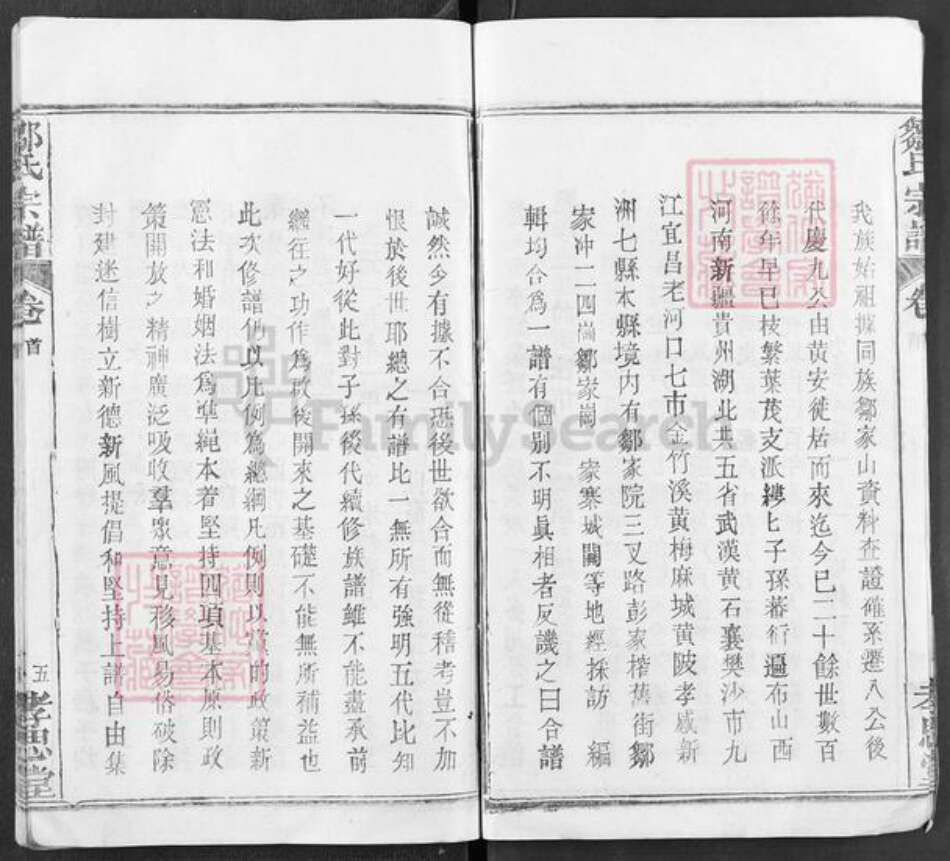 鄒氏宗譜 卷
我族始祖據同族鄒家山資料查證確系遷入八公後
代慶九公由黄安徙居而來迄今已二十餘世數百
徐年早已枝繁葉茂支派緜上子孫蕃衍遍布山西
河南新疆貴州湖北共五省武漢黄石襄樊沙市九
江宜昌老河口七市金竹溪黄梅麻城黄陂孝感新
洲七縣本縣境内有鄒家院三叉路彭家榨舊街鄒
家冲二四崗鄒家崗 家寨城關等地經採訪 編
輯均合為一譜有個别不明眞相者反譏之曰合譜
誠然乡有據不合恐後世欲合而無從稽考豈不加
恨於後世耶總之有譜比一無所有強明五代比知
一代好從此對子孫後代續修族譜雖不能盡承前
繼往之功作為啟後開來之基礎不能無所補益也
此次修譜仍以凡例為總綱凡例則以黨的政策新
憲法和婚姻法為準繩本着堅持四項基本原則政
策開放之精神廣泛吸收羣衆意見移風易俗破除
封建迷信樹立新德新風提倡和堅持上譜自由集
鄒氏宗譜 卷首
五 孝思堂
孝思堂
FamilySearch